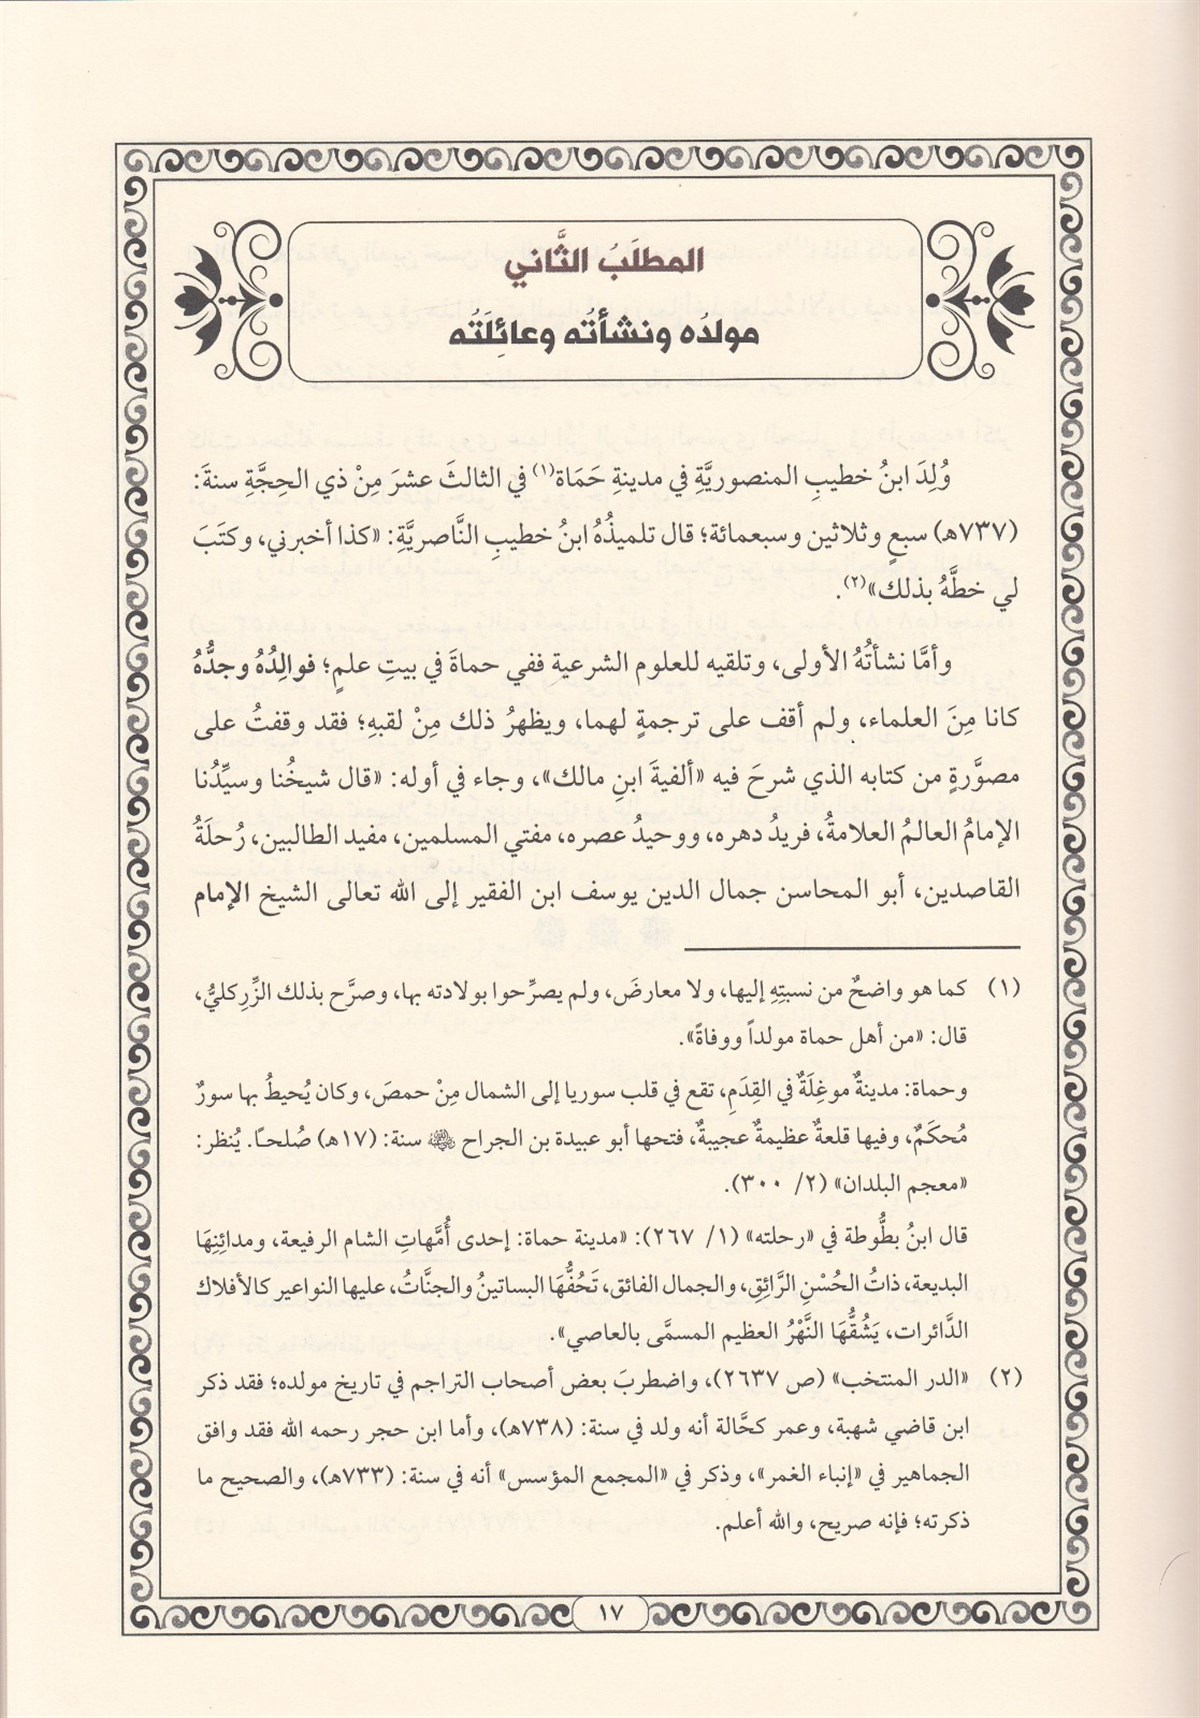 المطلَبُ الثَّاني
مولدُه ونشأتُه وعائِلَتُه
وُلِدَ ابنُ خطيبِ المنصوريَّةِ في مدينةِ حَمَاة(١) في الثالثَ عشرَ مِنْ ذي الحِجَّةِ سنةَ:
(٧٣٧هـ) سبعٍ وثلاثين وسبعمائة؛ قال تلميذُهُ ابنُ خطيبِ النَّاصريَّةِ: «كذا أخبرني، وكتَبَ
لي خطَّهُ بذلك»(٢).
وأمَّا نشأتُهُ الأولى، وتلقيه للعلوم الشرعية ففي حماةَ في بيتِ علمٍ؛ فوالِدُهُ وجدُّهُ
كانا مِنَ العلماء، ولم أقف على ترجمةٍ لهما، ويظهرُ ذلك مِنْ لقبهِ؛ فقد وقفتُ على
مصوَّرةٍ من كتابه الذي شرحَ فيه «ألفيةَ ابنِ مالك»، وجاء في أوله: «قال شيخُنا وسيِّدُنا
الإمامُ العالمُ العلامةُ، فريدُ دهره، ووحيدُ عصره، مفتي المسلمين، مفيد الطالبين، رُحلَةُ
القاصدين، أبو المحاسن جمال الدين يوسف ابن الفقير إلى الله تعالى الشيخ الإمام
(١) كما هو واضحٌ من نسبتِهِ إليها، ولا معارضَ، ولم يصرِّحوا بولادته بها، وصرَّح بذلك الزِّرِكليُّ،
قال: «من أهل حماة مولداً ووفاةً».
وحماة: مدينةٌ موغِلَةٌ في القِدَمِ، تقع في قلب سوريا إلى الشمال مِنْ حمصَ، وكان يُحيطُ بها سورٌ
مُحكَمٌ، وفيها قلعةٌ عظيمةٌ عجيبةٌ، فتحها أبو عبيدة بن الجراح ﷺ سنة: (١٧هـ) صُلحاً. يُنظر:
«معجم البلدان» (٢/ ٣٠٠).
قال ابنُ بطُّوطة في «رحلته» (١/ ٢٦٧): «مدينة حماة: إحدى أُمَّهاتِ الشام الرفيعة، ومدائِنِهَا
البديعة، ذاتُ الحُسْنِ الرَّائِقِ، والجمال الفائق، تَحُفُّهَا البساتينُ والجنَّاتُ، عليها النواعير كالأفلاك
الدَّائرات، يَشُقُّهَا النَّهْرُ العظيم المسمَّى بالعاصي».
(٢) «الدر المنتخب» (ص ٢٦٣٧)، واضطربَ بعض أصحاب التراجم في تاريخ مولده؛ فقد ذكر
ابن قاضي شهبة، وعمر كحَّالة أنه ولد في سنة: (٧٣٨هـ)، وأما ابن حجر رحمه الله فقد وافق
الجماهير في «إنباء الغمر»، وذكر في «المجمع المؤسس» أنه في سنة: (٧٣٣هـ)، والصحيح ما
ذكرته؛ فإنه صريح، والله أعلم.
١٧